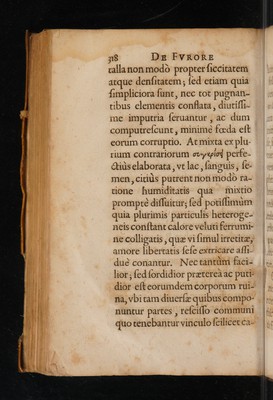 318 DE FVRORE
talla non modò propter siccitatem
atque densitatem; sed etiam quia
simpliciora sunt, nec tot pugnan-
tibus elementis conflata, diutissi-
me imputria seruantur, ac dum
computrescunt, minimè fœda est
eorum corruptio. At mixta ex plu-
rium contrariorum συγκράσει perfe-
ctiùs elaborata, vt lac, sanguis, se-
men, citiùs putrent non modò ra-
tione humiditatis qua mixtio
promptè dissuitur; sed potissimùm
quia plurimis particulis heteroge-
neis constant calore veluti ferrumi-
ne colligatis, quæ vi simul irretitæ,
amore libertatis sese extricare assi-
duè conantur. Nec tantùm faci-
lior; sed sordidior prætereà ac puti-
dior est eorumdem corporum rui-
na, vbi tam diuersæ quibus compo-
nuntur partes, rescisso communi
quo tenebantur vinculo scilicet ca-